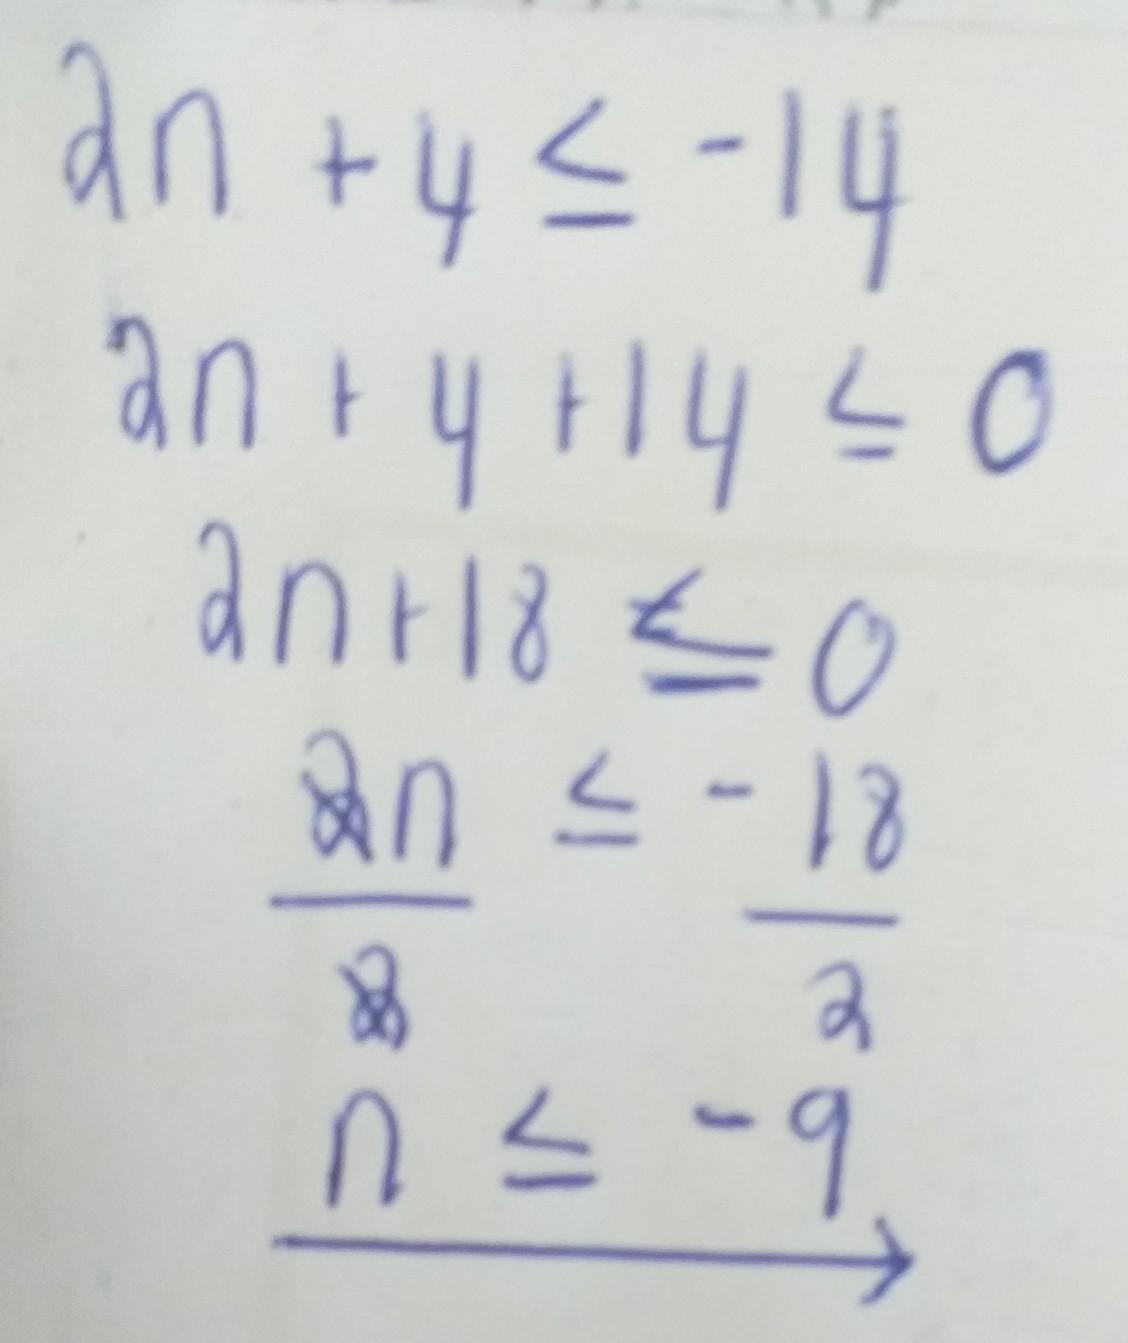 2n + 4 ≤ -14
2n + 4 + 14 ≤ 0
2n + 18 ≤ 0
2n ≤ -18
2 2
n ≤ -9